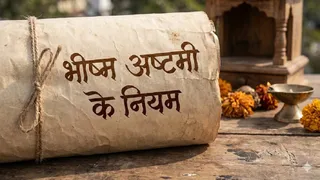 भीष्म अष्टमी
के नियम